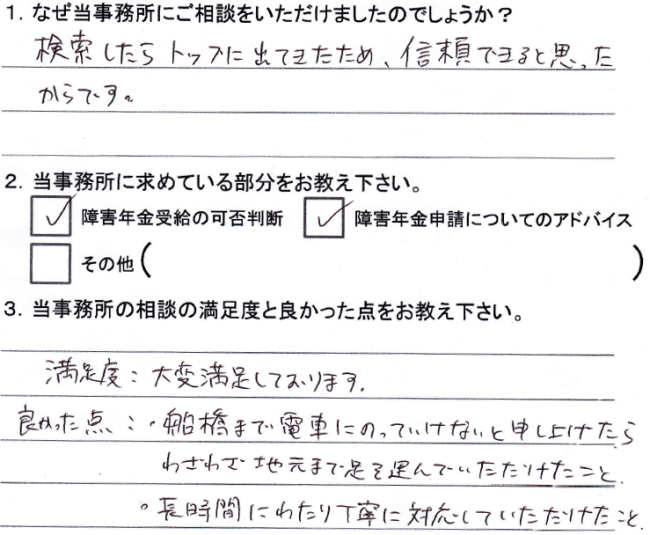 1. なぜ当事務所にご相談をいただけましたのでしょうか？
検索したらトップに出てきたため、信頼できると思った
からです。
2. 当事務所に求めている部分をお教え下さい。
障害年金受給の可否判断 障害年金申請についてのアドバイス
その他( )
3. 当事務所の相談の満足度と良かった点をお教え下さい。
満足度：大変満足しております.
良かった点：・船橋まで電車にのっていけないと申し上げたら
わざわざ地元まで足を運んでいただけたこと.
・長時間にわたり丁寧に対応していただけたこと.